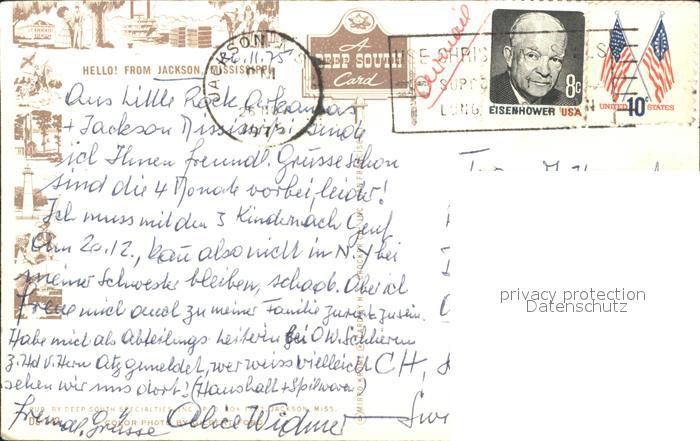 HELLO! FROM JACKSON, MISSISSIPPI
26.11.75
A
DEEP SOUTH
Card
JACKSON
PM
1975
USE CHRISTMAS SEALS
LUNG
EISENHOWER USA
8c
UNITED 10c STATES
Aus Little Rock Arkansas
+ Jackson Mississippi sende
ich Ihnen freundl. Grüsse schon
sind die 4 Monate vorbei, leider!
Ich muss mit den 3 Kindern nach Genf
am 20.12., kan also nicht in N.Y bei
meiner Schwester bleiben, schade. Aber ich
freue mich auch zu meiner Familie zurück zu sein.
Habe mich als Abteilungs-leiterin bei OW. Schlieren
z. Hd v. Herrn Atz gmeldet, wer weiss vielleich
sehen wir uns dort! (Haushalt + Spilwaren)
Freundl. Grüsse Alice Widmer
CH,
PUB. BY DEEP SOUTH SPECIALTIES, INC., JACKSON, MISS.
COLOR PHOTO BY
privacy protection
Datenschutz